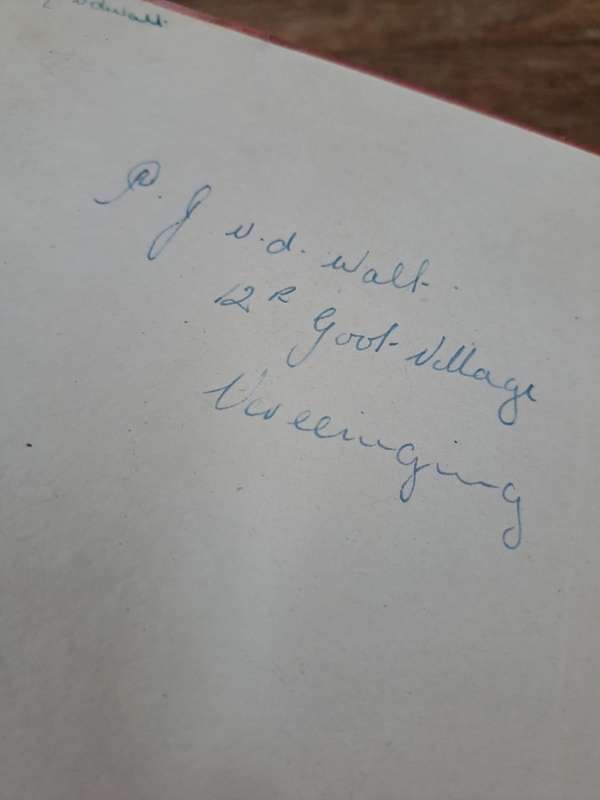 vdwalt
P. J v.d. Walt.
12R Govt-Village
Vereeniging